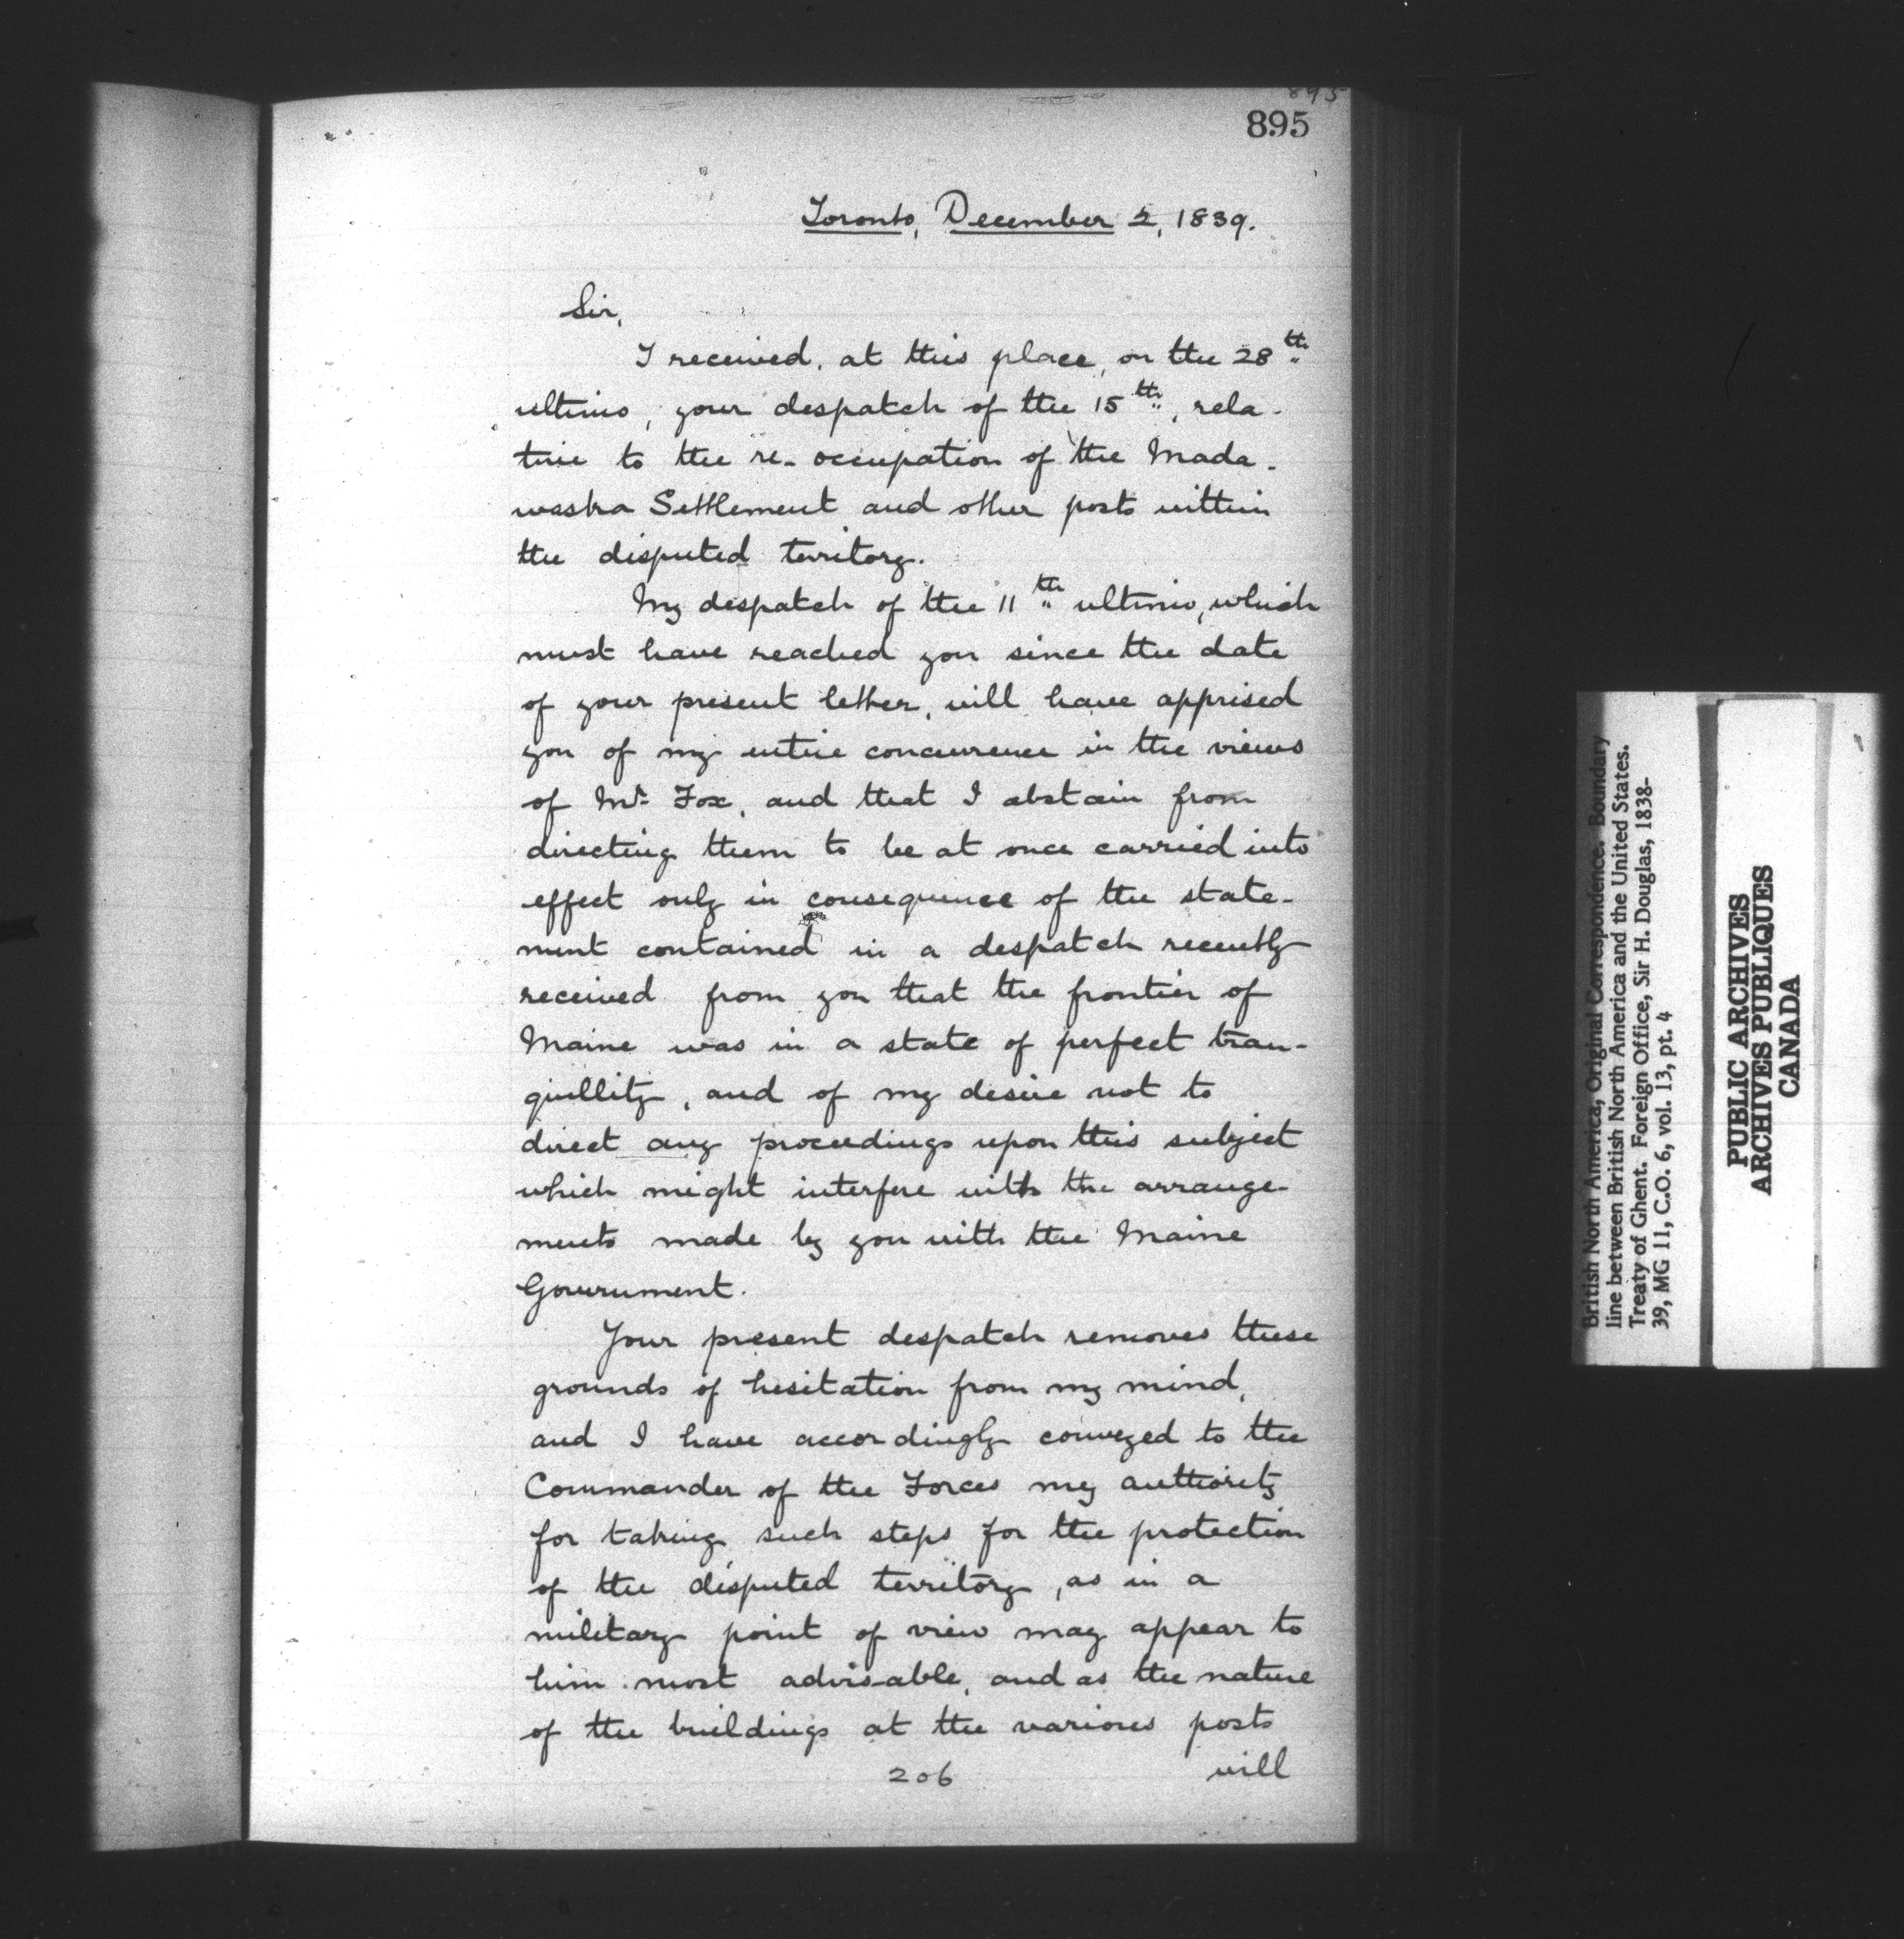 895
895
Toronto, December 2, 1839.
Sir,
I received, at this place, on the 28th
ultimo, your despatch of the 15th, rela-
tive to the re-occupation of the Mada-
waska Settlement and other posts within
the disputed territory.
My despatch of the 11th ultimo, which
must have reached you since the date
of your present letter, will have apprised
you of my entire concurrence in the views
of Mr. Fox, and that I abstain from
directing them to be at once carried into
effect only in consequence of the state-
ment contained in a despatch recently
received from you that the frontier of
Maine was in a state of perfect tran-
quillity, and of my desire not to
direct any proceedings upon this subject
which might interfere with the arrange-
ments made by you with the Maine
Government.
Your present despatch removes these
grounds of hesitation from my mind,
and I have accordingly conveyed to the
Commander of the Forces my authority
for taking such steps for the protection
of the disputed territory, as in a
military point of view may appear to
him most advisable, and as the nature
of the buildings at the various posts
206 will
British North America, Original Correspondence. Boundary
line between British North America and the United States.
Treaty of Ghent. Foreign Office, Sir H. Douglas, 1838-
39, MG 11, C.O. 6, vol. 13, pt. 4
PUBLIC ARCHIVES
ARCHIVES PUBLIQUES
CANADA